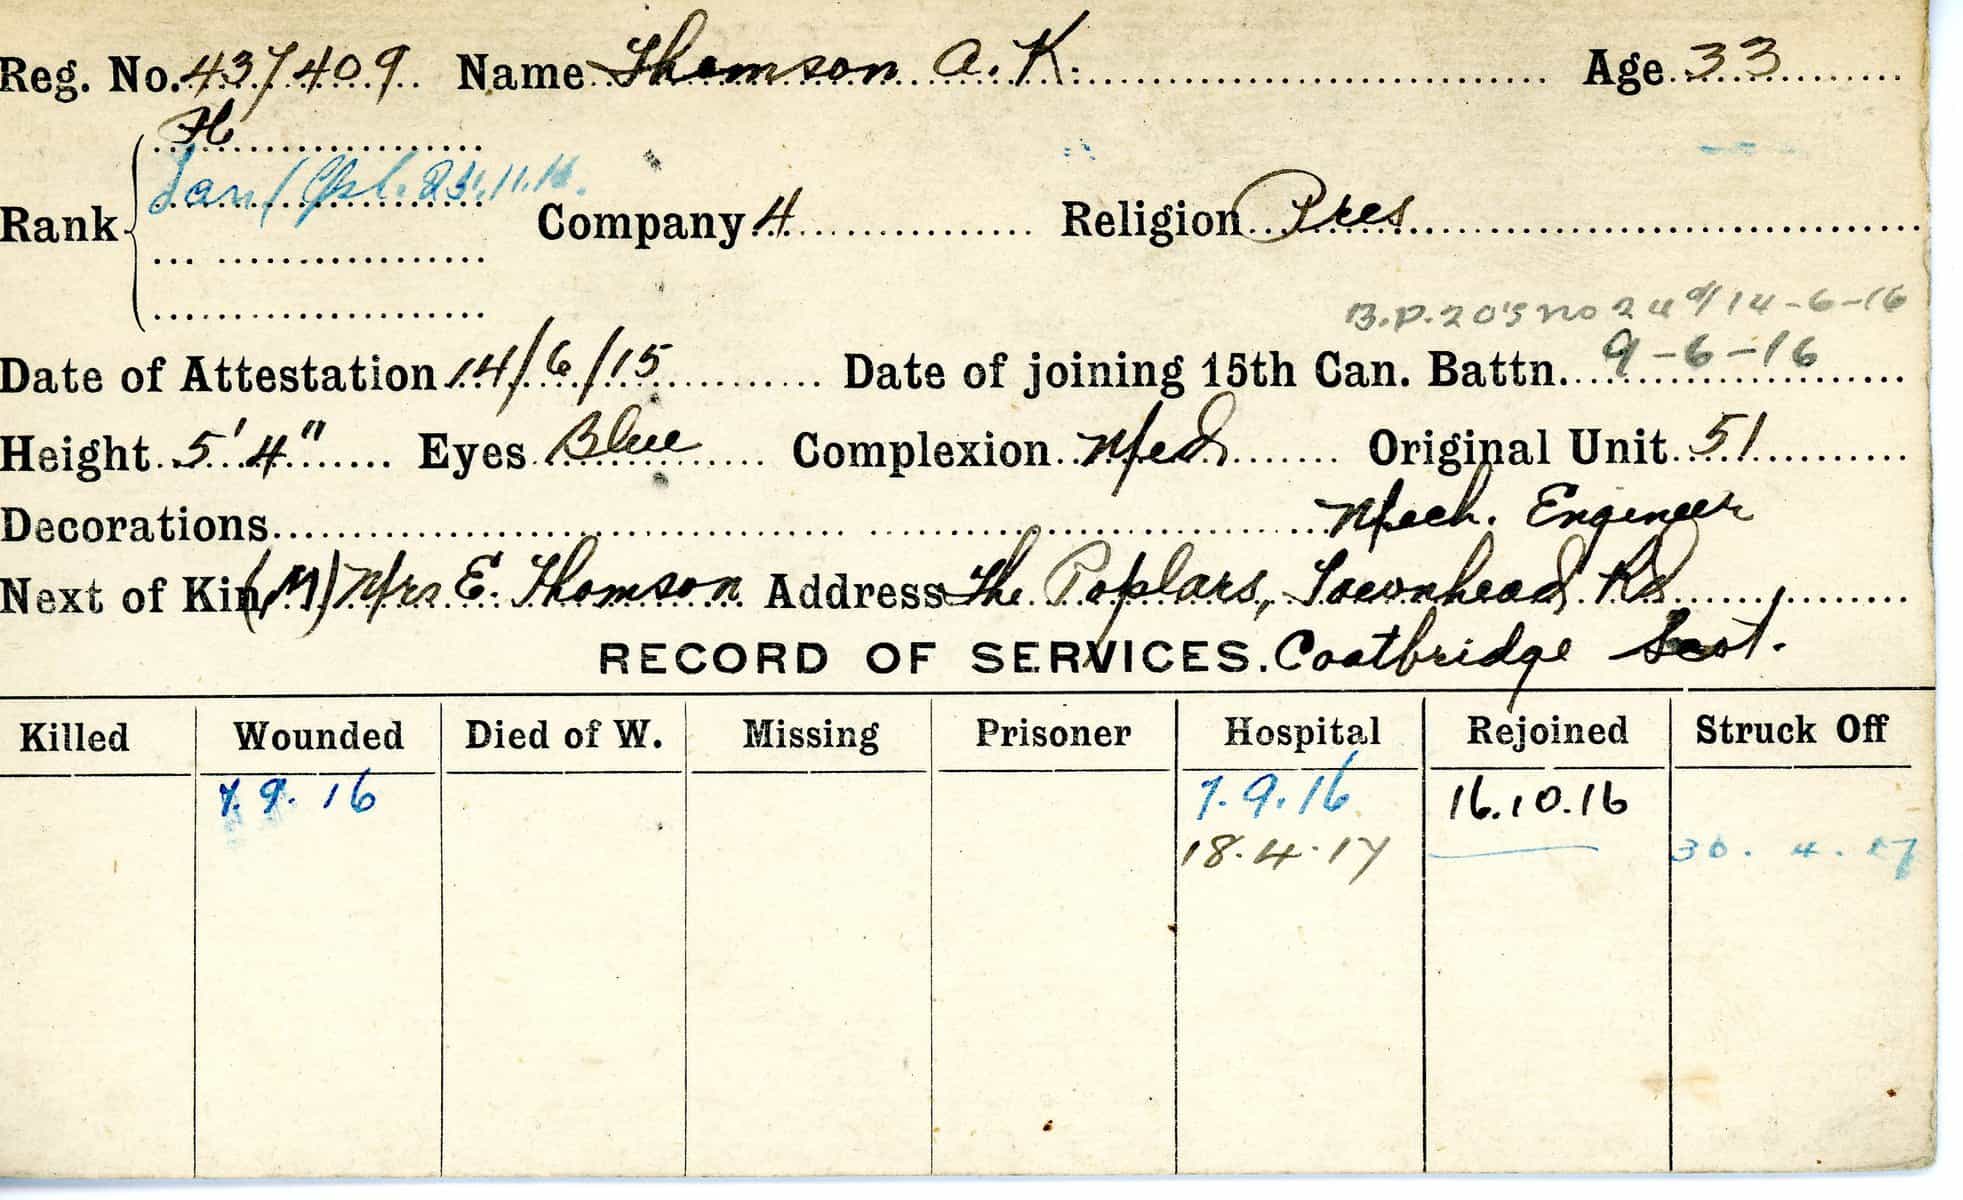 Reg. No. 437409 Name Thomson A. K. Age 33
Rank
Lan/Cpl. 23.11.16.
Company 4 Religion Pres
B.P. 203 no 24 d/14-6-16
Date of Attestation 14/6/15 Date of joining 15th Can. Battn. 9-6-16
Height 5'4" Eyes Blue Complexion Med Original Unit 51
Decorations Mech. Engineer
Next of Kin (M) Mrs E. Thomson Address The Poplars, Townhead Rd
RECORD OF SERVICES. Coatbridge Scot.
Killed Wounded Died of W. Missing Prisoner Hospital Rejoined Struck Off
7.9.16 7.9.16 16.10.16
18.4.17 30.4.17